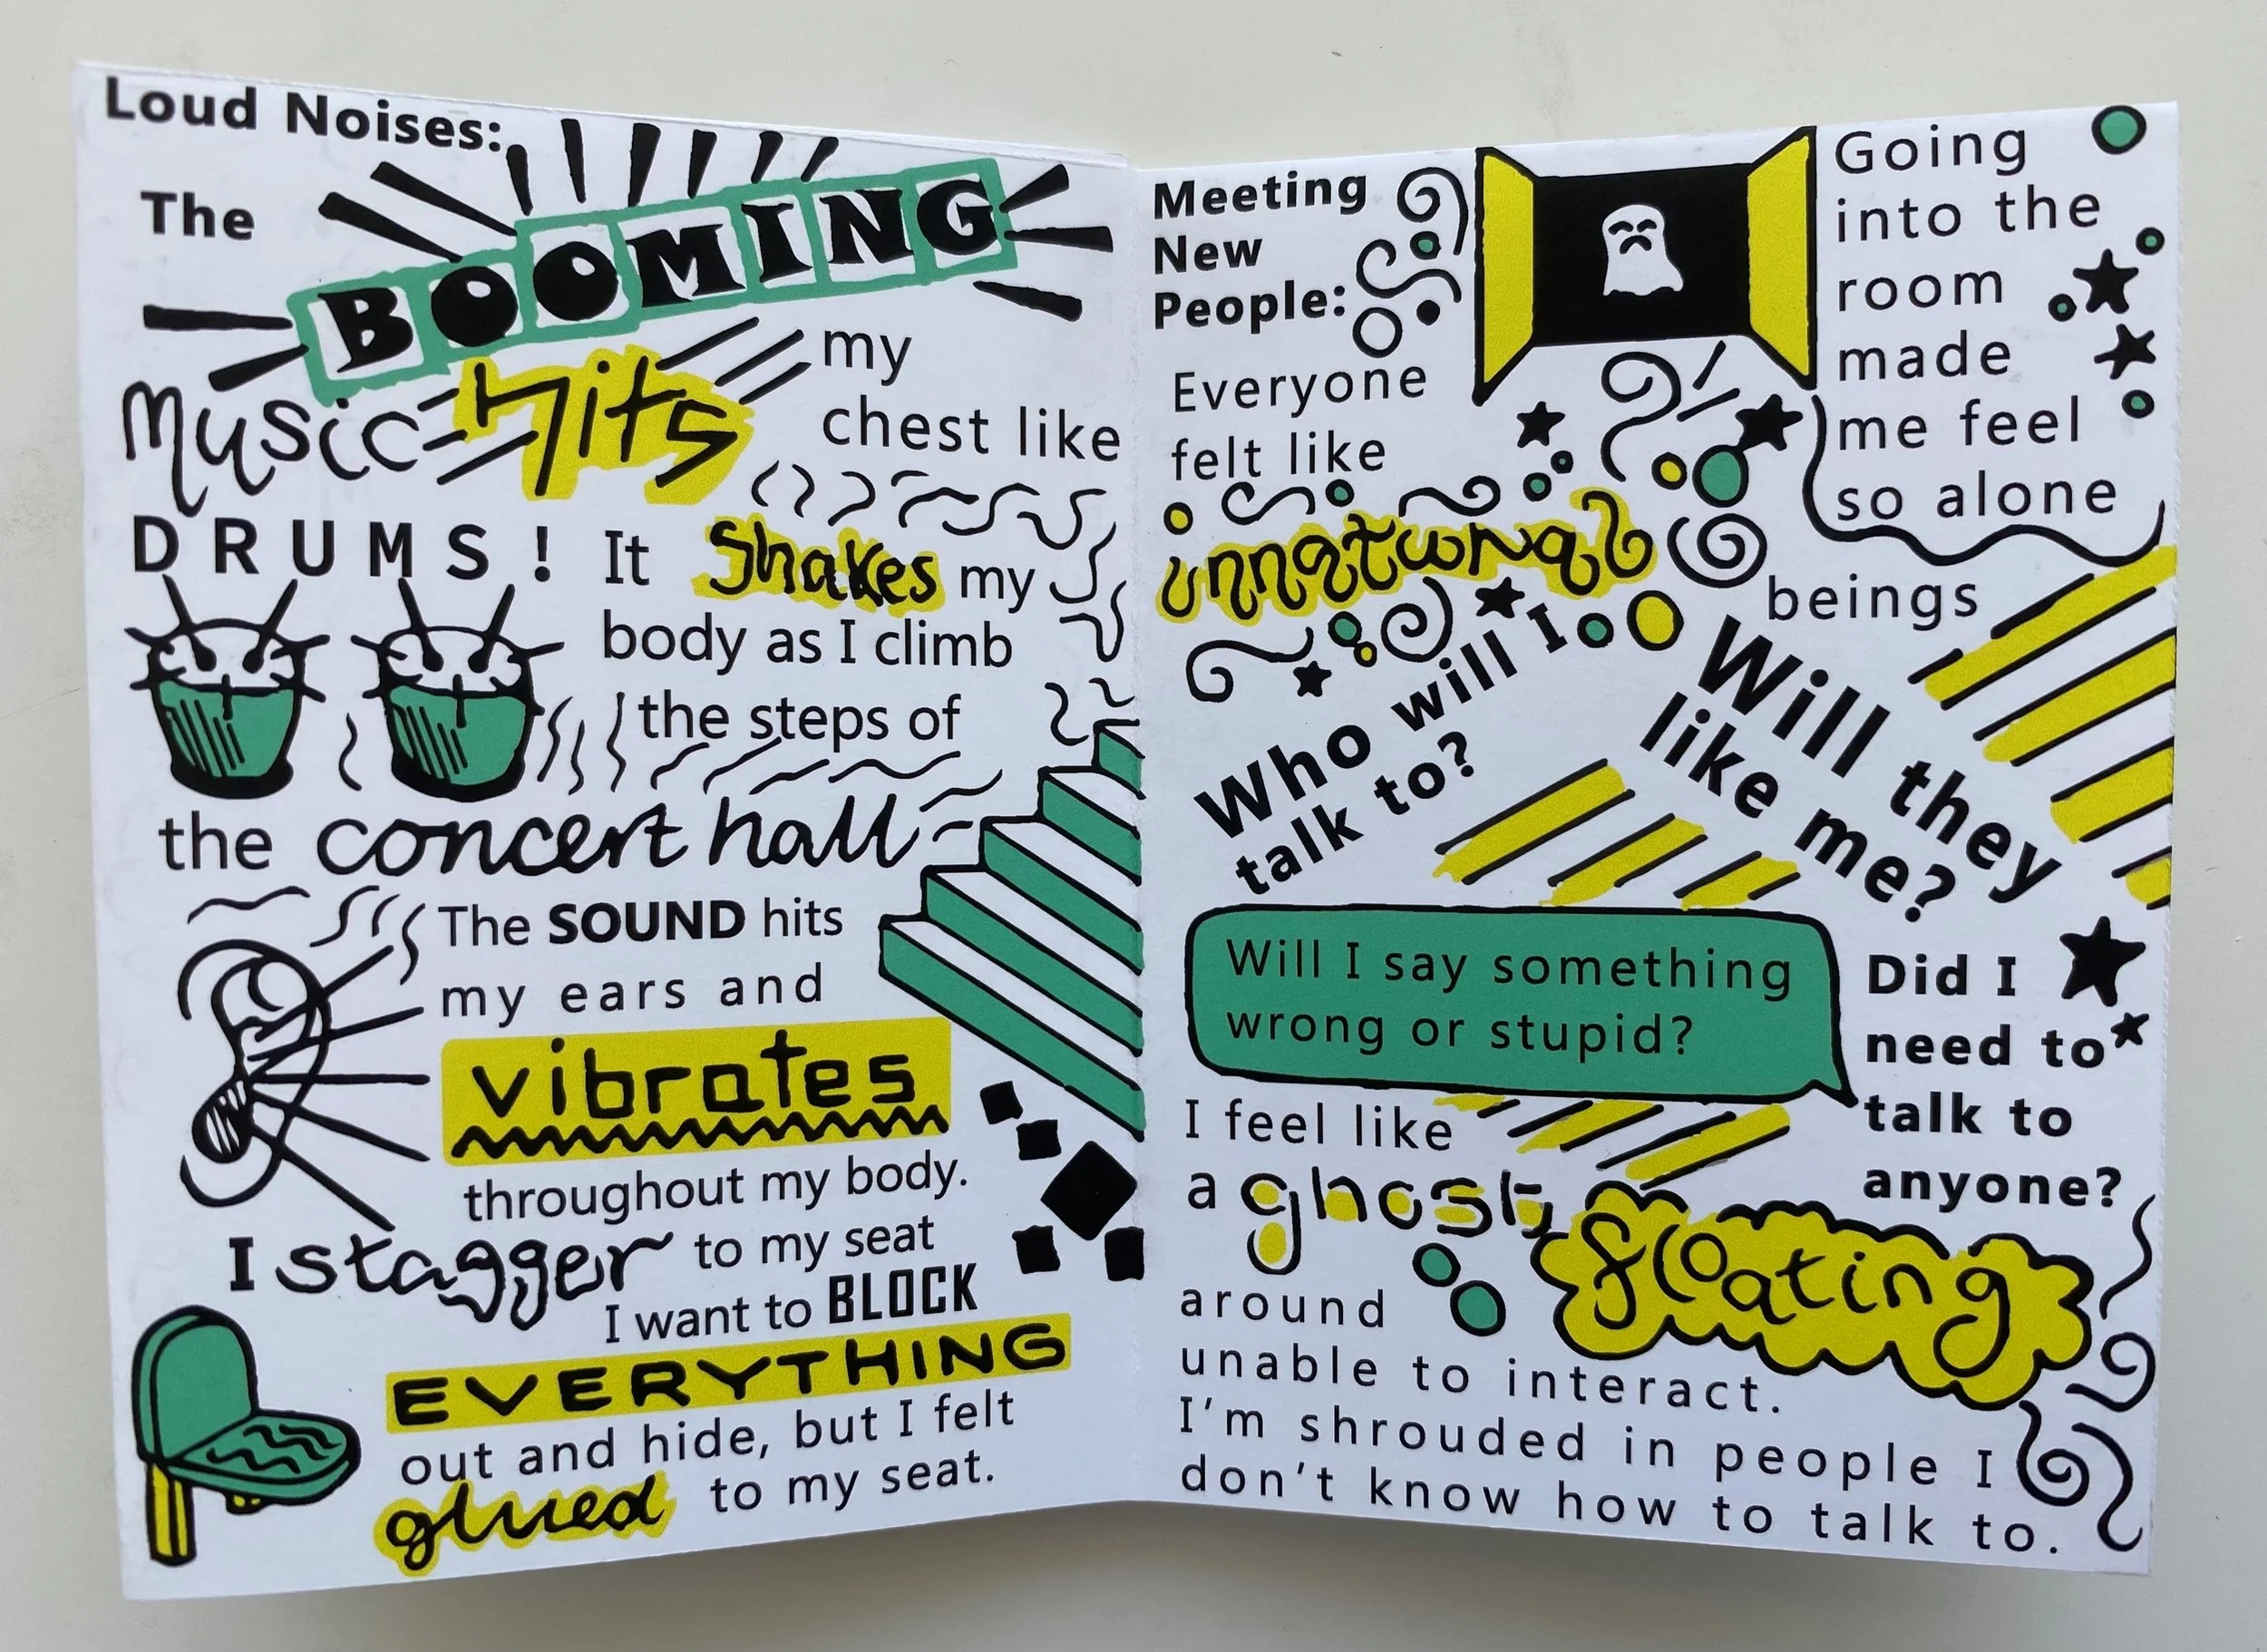 Loud Noises:
The
BOOMING
music hits my
chest like
DRUMS! It Shakes my
body as I climb
the steps of
the concert hall
The SOUND hits
my ears and
vibrates
throughout my body.
I stagger to my seat
I want to BLOCK
EVERYTHING
out and hide, but I felt
glued to my seat.
Meeting
New
People:
Going
into the
room
made
me feel
so alone
Everyone
felt like
unnatural
beings
Who will I
talk to?
Will they
like me?
Will I say something
wrong or stupid?
Did I
need to
talk to
anyone?
I feel like
a ghost, floating
around
unable to interact.
I'm shrouded in people I
don't know how to talk to.